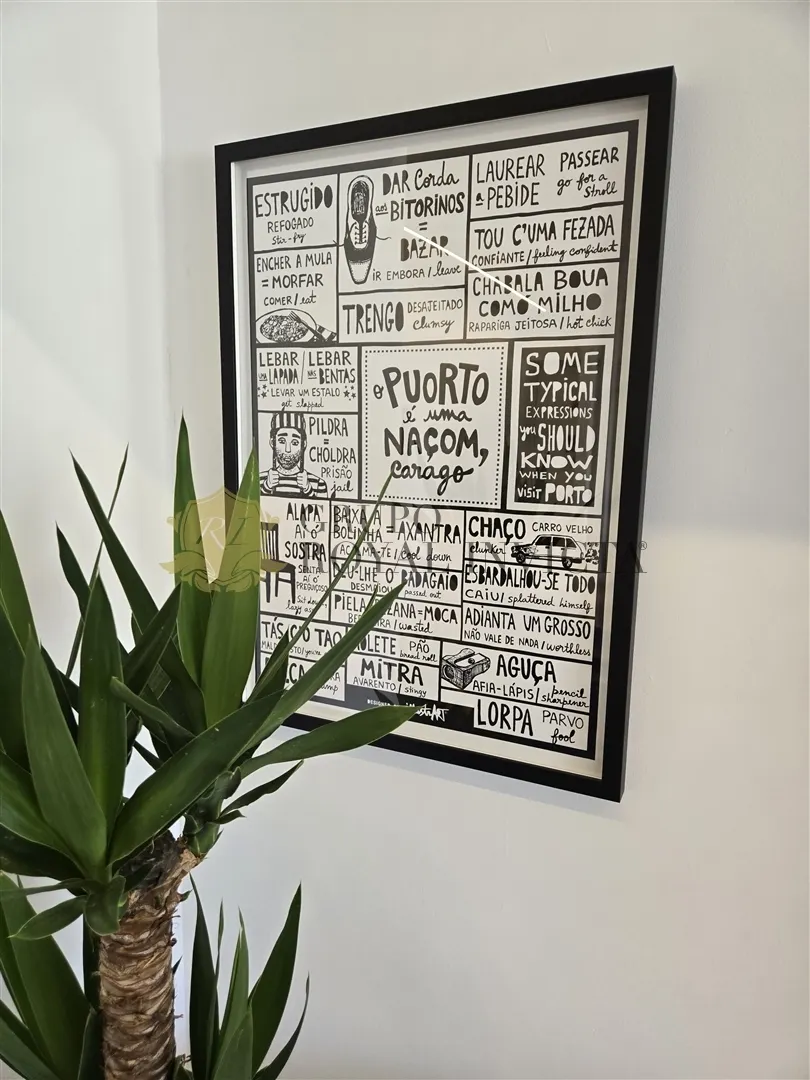 ESTRUGIDO
REFOGADO
Stir-fry
DAR Corda
aos BITORINOS
=
BAZAR
IR EMBORA / leave
LAUREAR
a PEBIDE
PASSEAR
go for a
stroll
TOU C'UMA FEZADA
CONFIANTE / feeling confident
ENCHER A MULA
= MORFAR
COMER / eat
TRENGO
DESAJEITADO
clumsy
CHABALA BOUA
COMO MILHO
RAPARIGA JEITOSA / hot chick
LEBAR
UMA LAPADA
/
LEBAR
NAS BENTAS
LEVAR UM ESTALO
get slapped
O PUORTO
é uma
NAÇOM,
carago
SOME
TYPICAL
EXPRESSIONS
you SHOULD
KNOW
WHEN YOU
VISIT PORTO
PILDRA
=
CHOLDRA
PRISÃO
jail
ALAPA
AÍ Ó
SOSTRA
SENTA
AÍ Ó
PREGUIÇOSO
Sit down
lazy
BAIXA A
BOLINHA = AXANTRA
ACALMA-TE / cool down
CHAÇO
CARRO VELHO
clunker
DEU-LHE O BADAGAIO
DESMAIOU
passed out
ESBARDALHOU-SE TODO
CAIU / splattered himself
= MOCA
wasted
ADIANTA UM GROSSO
NÃO VALE DE NADA / worthless
PÃO
bread roll
MITRA
AVARENTO / stingy
AGUÇA
AFIA-LÁPIS / pencil
sharpener
LORPA
PARVO
fool
GRUPO
ROYAL
®